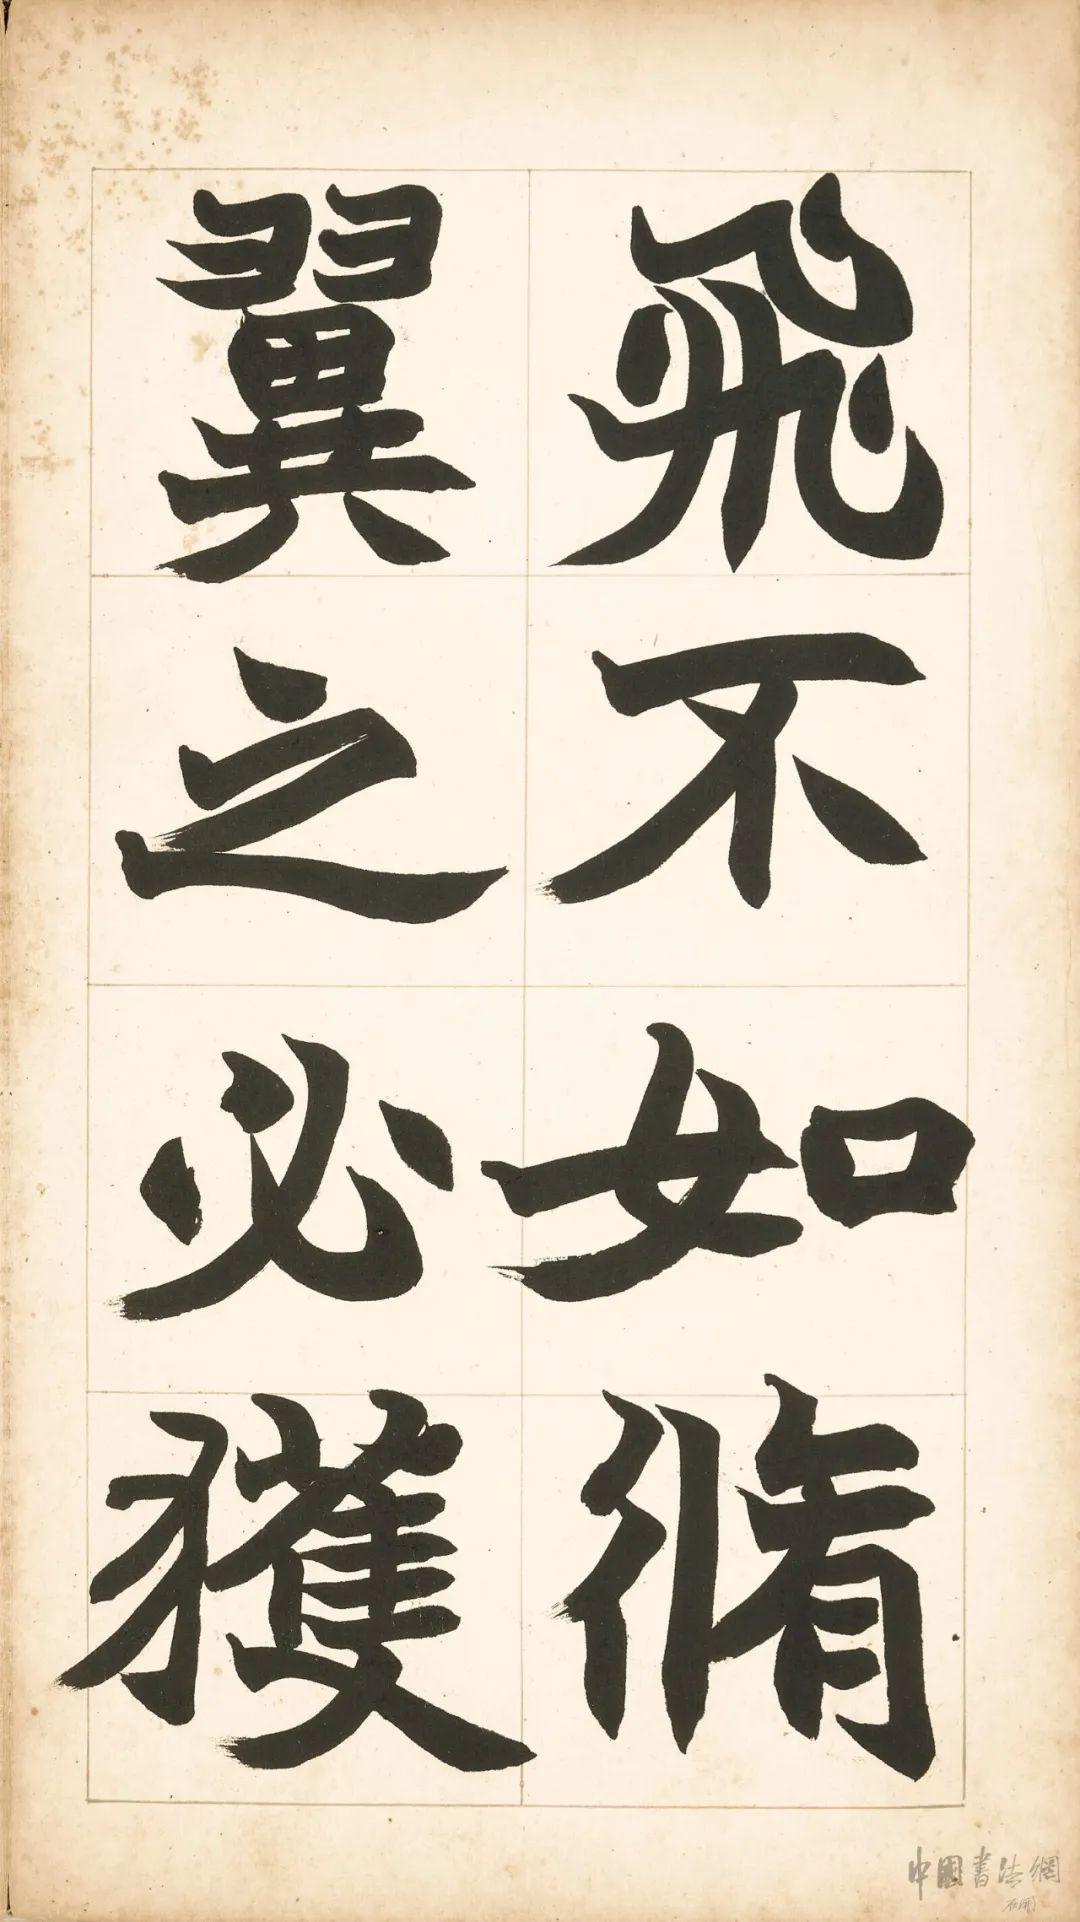 飛不如脩
翼之必獲
中國書法網